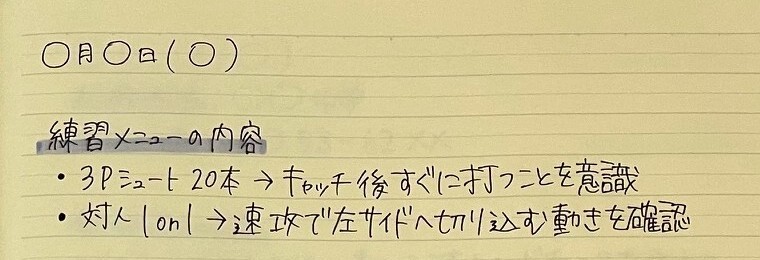 ○月○日(○)
練習メニューの内容
・3Pシュート20本→キャッチ後すぐに打つことを意識
・対人1on1→速攻で左サイドへ切り込む動きを確認